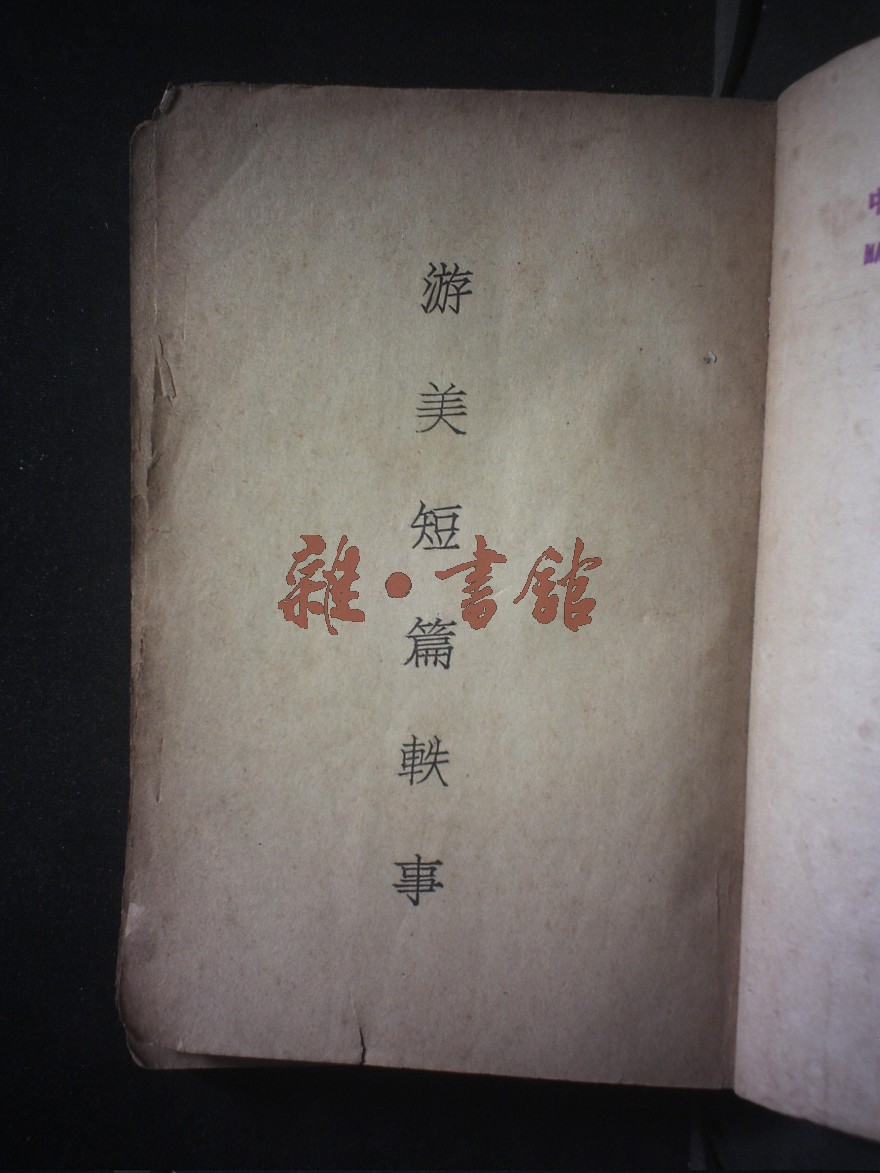 游美短篇軼事
雜·書館
中
NA